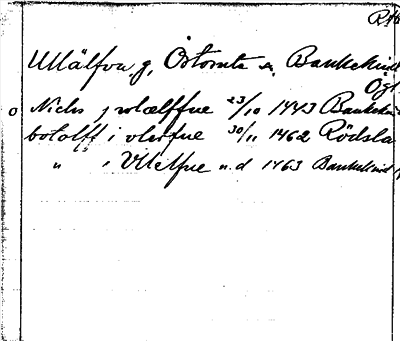 Ullälfva g, Östomta sn, Bankekind
Ögl
o Niclis j wlælffue 23/10 1443 Bankekind
botolff i vlerfue 30/11 1462 Rödsla
" , Vllelfue u.d 1463 Bankekind